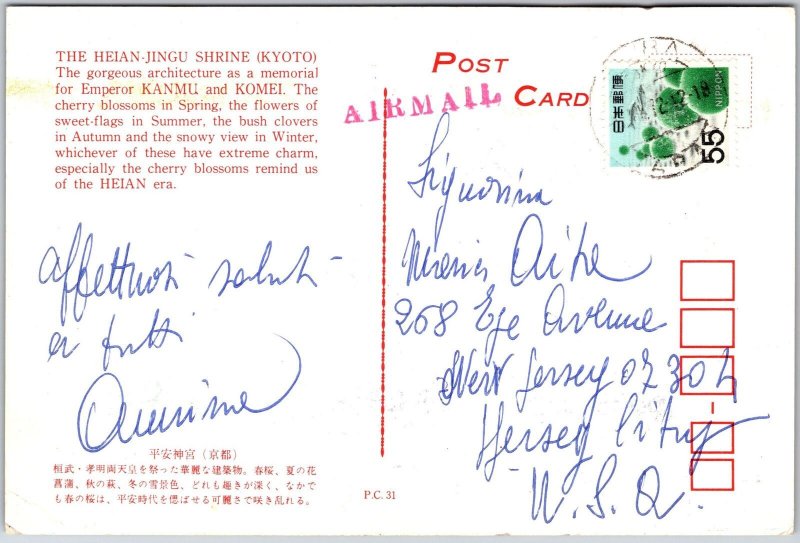 THE HEIAN-JINGU SHRINE (KYOTO)
The gorgeous architecture as a memorial
for Emperor KANMU and KOMEI. The
cherry blossoms in Spring, the flowers of
sweet-flags in Summer, the bush clovers
in Autumn and the snowy view in Winter,
whichever of these have extreme charm,
especially the cherry blossoms remind us
of the HEIAN era.
POST
CARD
AIRMAIL
日本郵便
NIPPON
55
affettuosi saluti
a tutti
平安神宮（京都）
桓武・孝明両天皇を祭った華麗な建築物。春桜、夏の花
菖蒲、秋の萩、冬の雪景色、どれも趣きが深く、なかで
も春の桜は、平安時代を偲ばせる可麗さで咲き乱れる。
P.C. 31
Signorina
Aite
268 Ege Avenue
New Jersey 07304
Jersey City
U.S.A.